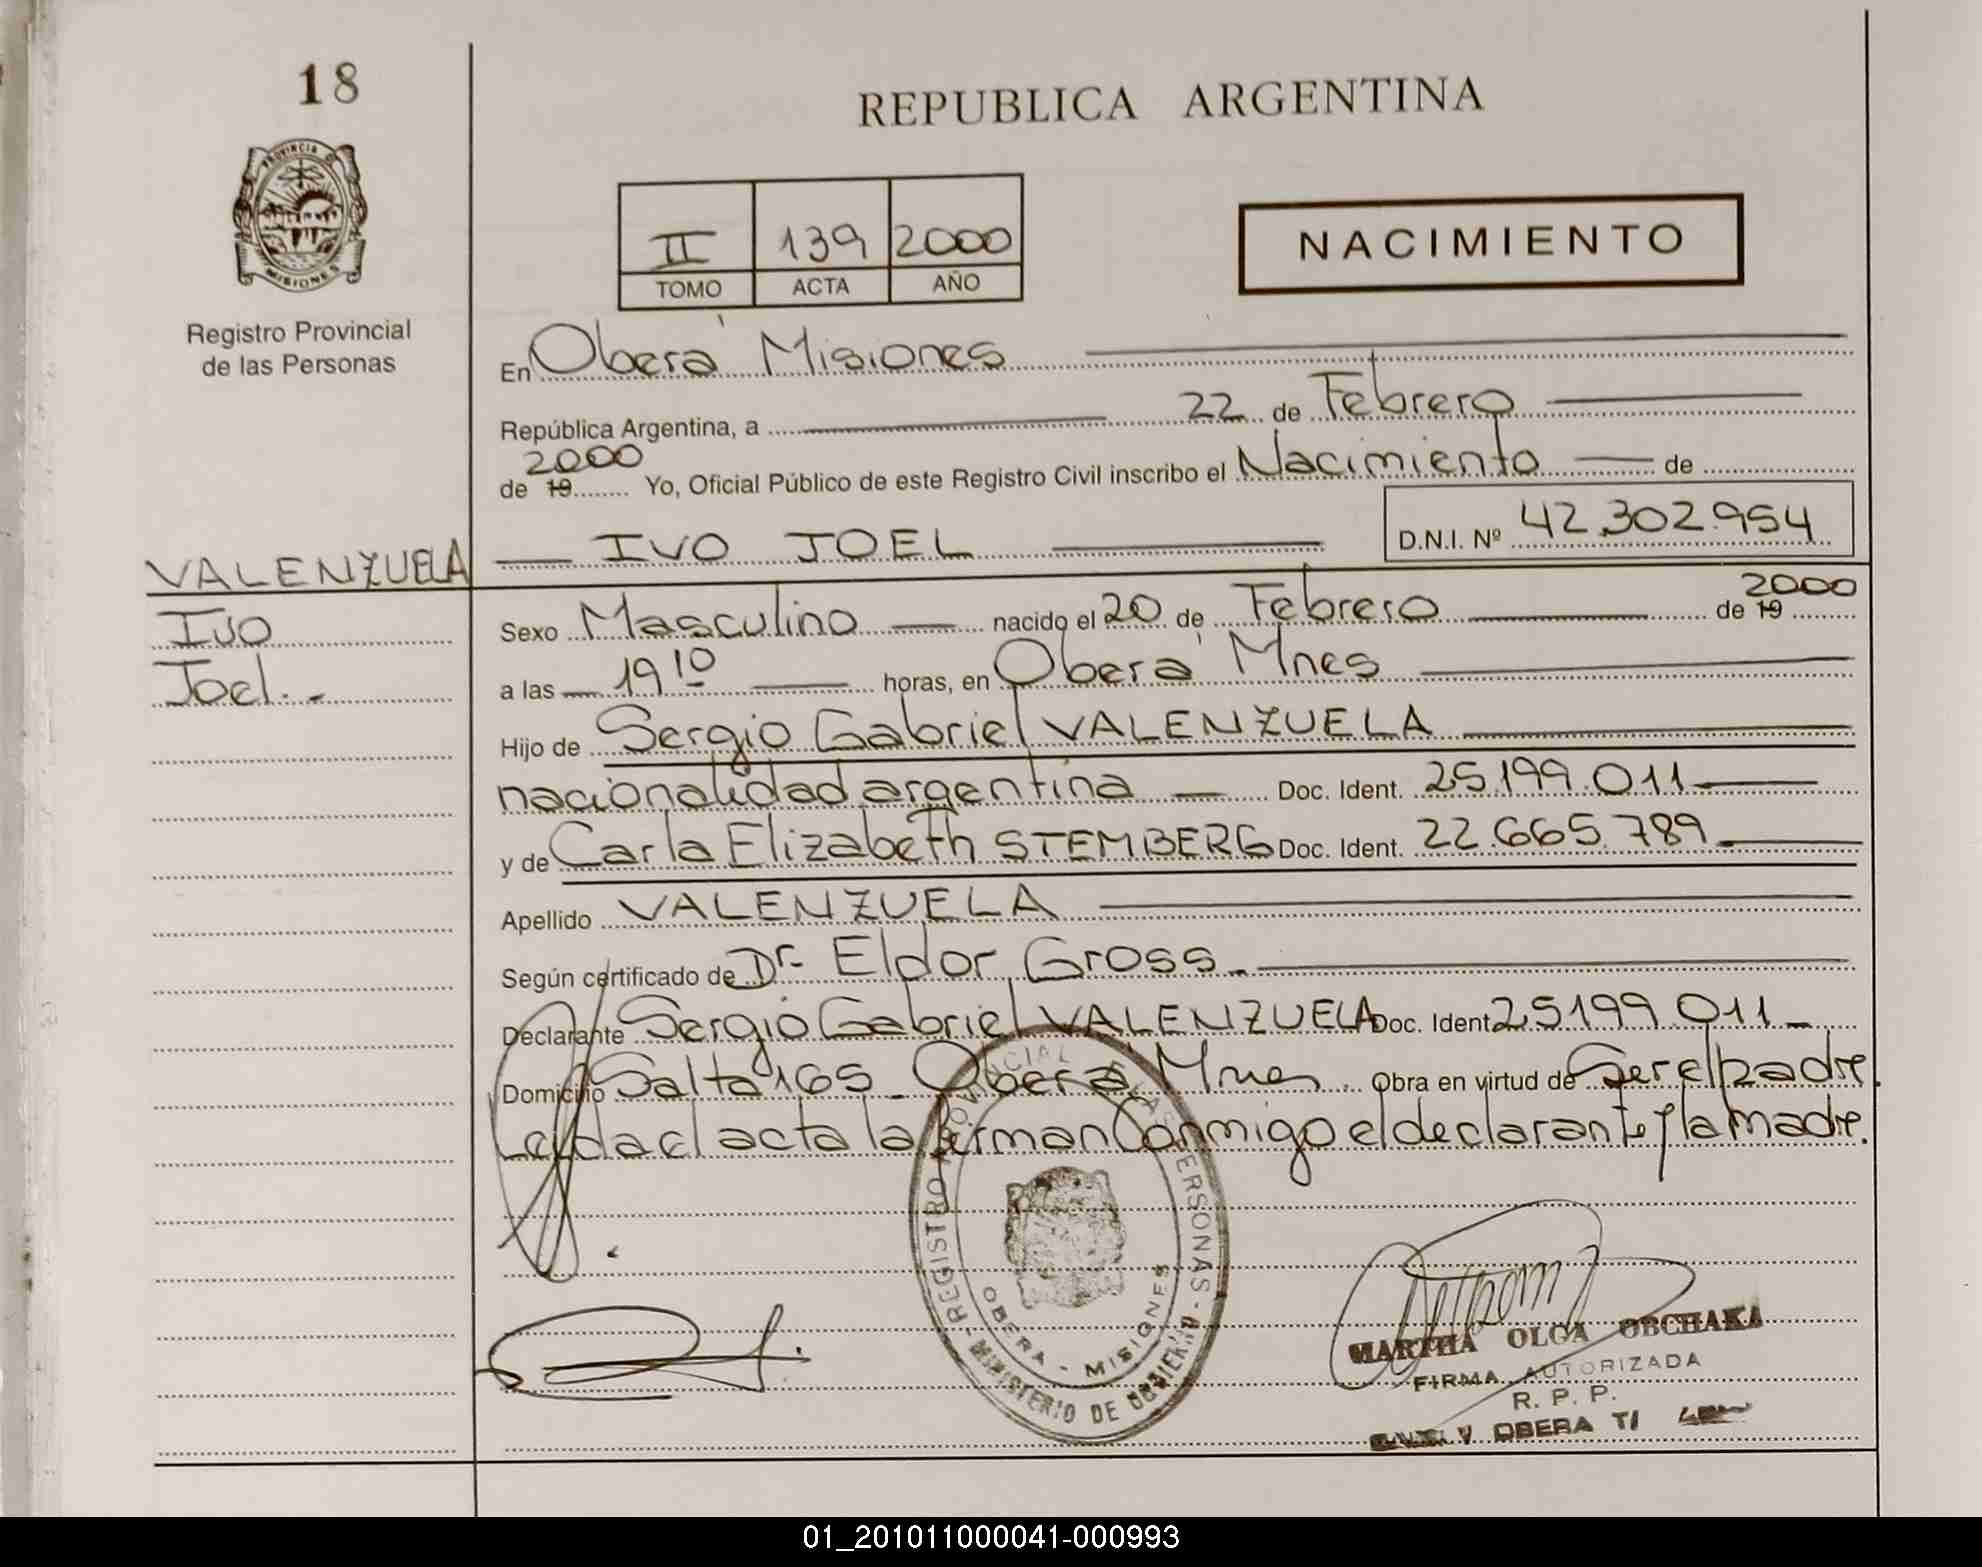 18
REPUBLICA ARGENTINA
PROVINCIA D
MISIONES
II 139 2000
TOMO ACTA AÑO
NACIMIENTO
Registro Provincial
de las Personas
En Oberá Misiones
República Argentina, a 22 de Febrero
2000
de 19 Yo, Oficial Público de este Registro Civil inscribo el Nacimiento de
IVO JOEL D.N.I. Nº 42.302.954
VALENZUELA
Ivo
Joel.-
2000
Sexo Masculino nacido el 20 de Febrero de 19
a las 19 10 horas, en Oberá Mnes
Hijo de Sergio Gabriel VALENZUELA
nacionalidad argentina Doc. Ident. 25.199.011
y de Carla Elizabeth STEMBERG Doc. Ident. 22.665.789
Apellido VALENZUELA
Según certificado de Dr. Eldor Gross.
Declarante Sergio Gabriel VALENZUELA Doc. Ident 25199.011
Domicilio Salta 165 Oberá Mnes Obra en virtud de Ser el padre.
Leida el acta la firman Conmigo el declarante y la madre.
REGISTRO PROVINCIAL LAS PERSONAS - MINISTERIO DE GOBIERNO
OBERA - MISIONES
MARTHA OLGA OBCHAKA
FIRMA AUTORIZADA
R. P. P.
OBERA
01_201011000041-000993